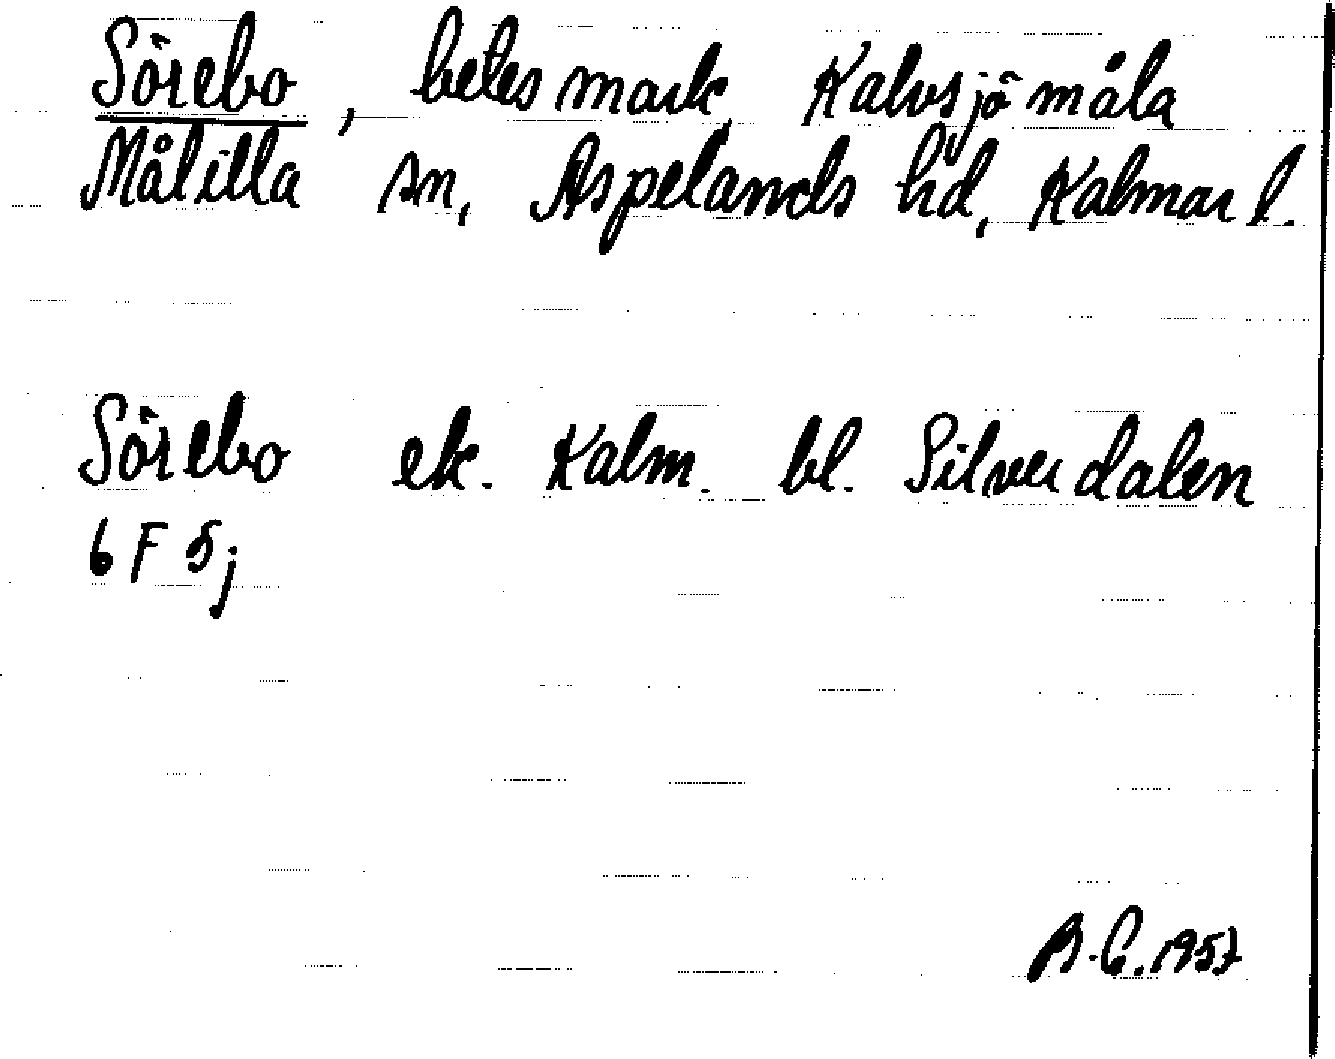 Sörebo, betesmark, Kalvsjömåla
Målilla sn, Aspelands hd, Kalmar l.
Sörebo ek. Kalm. bl. Silverdalen
6 F 5j
1957